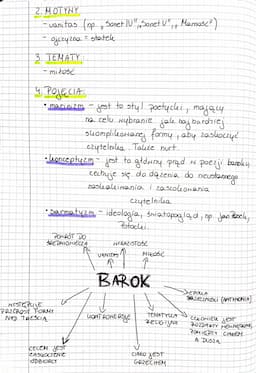 2. MOTYWY
- vanitas (np. „Sonet IV", „Sonet V", „Marność")
- ojczyzna = statek
3. TEMATY
- miłość
4. POJĘCIA
• marinizm - jest to styl poetycki, mający
na celu wybranie jak najbardziej
skomplikowanej formy, aby zaskoczyć
czytelnika. Także nurt.
• konceptyzm - jest to główny prąd w poezji baroku
cechuje się do dążenia do nieustannego
zaskakiwania i zaciekawiania
czytelnika
• sarmatyzm - ideologia, światopogląd, np. Jan
Potocki
POWRÓT DO
ŚREDNIOWIECZA
VANITAS
MIŁOŚĆ
BAROK
EPOKA
NASTĘPUJE
PRZEROST FORMY
NAD TREŚCIĄ
KONTRASTY
TEMATYKA
RELIGIJNA
CZŁOWIEK JEST
ROZDARTY WEWNĘTRZNIE
POMIĘDZY CIAŁEM
A DUSZĄ
CELEM JEST
ZASKOCZENIE
ODBIORCY
CIAŁO JEST
GRZECHEM